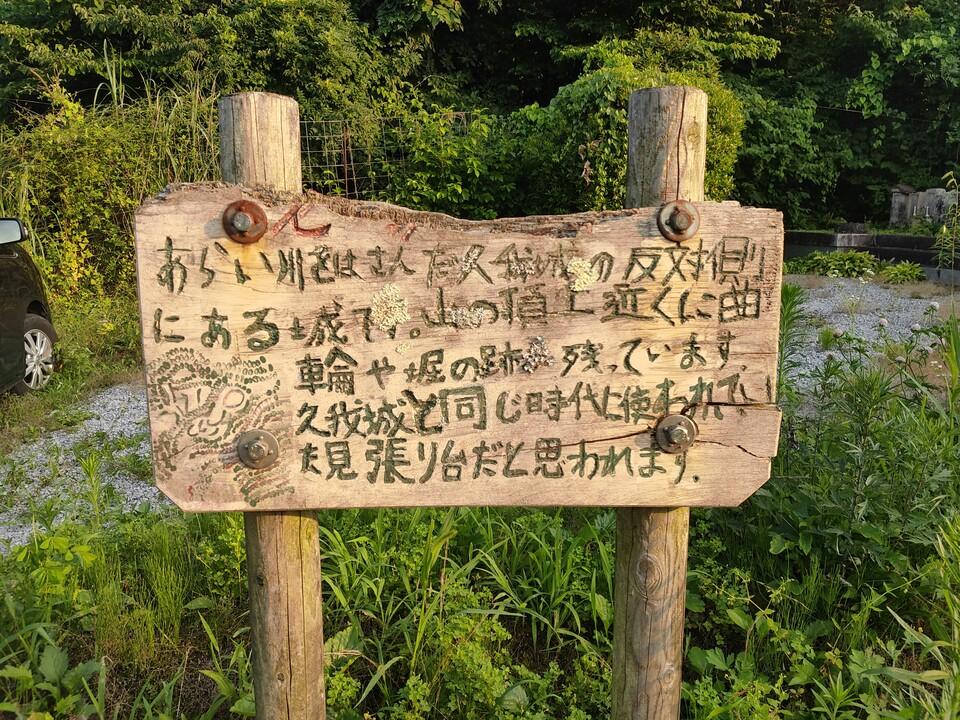 あらい川をはさんだ久我城の反対側
にある城です。山の頂上近くに曲
輪や堀の跡が残っています。
久我城と同じ時代に使われてい
た見張り台だと思われます。